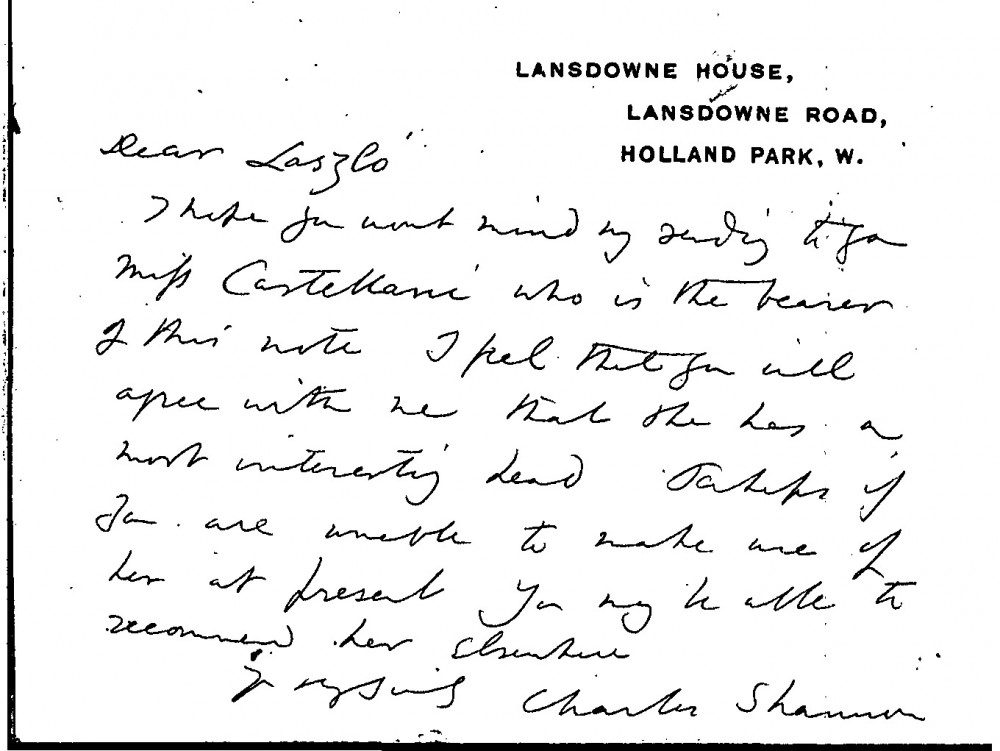 LANSDOWNE HOUSE,
LANSDOWNE ROAD,
HOLLAND PARK, W.
Dear Laszló
I hope you wont mind my sending to you
Miss Castellani who is the bearer
of this note I feel that you will
agree with me that she has a
most interesting head Perhaps if
you are unable to make use of
her at present you may be able to
recommend her elsewhere
Charles Shannon